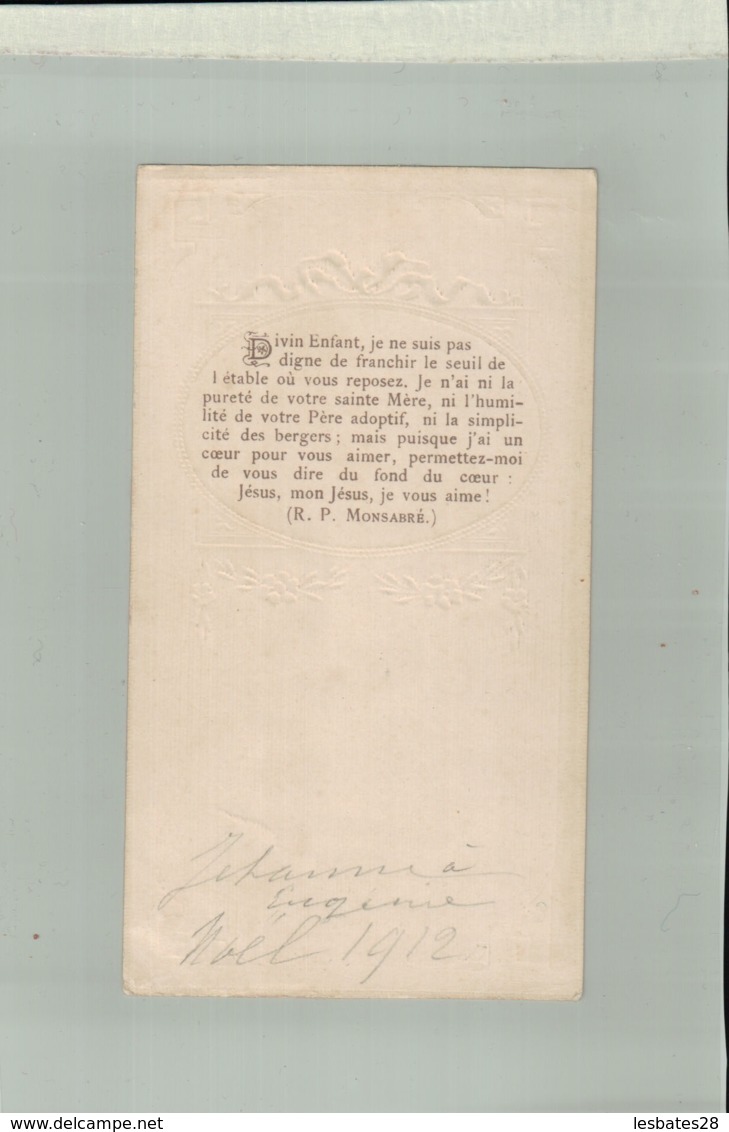 Divin Enfant, je ne suis pas
digne de franchir le seuil de
l étable où vous reposez. Je n'ai ni la
pureté de votre sainte Mère, ni l'humi-
lité de votre Père adoptif, ni la simpli-
cité des bergers ; mais puisque j'ai un
cœur pour vous aimer, permettez-moi
de vous dire du fond du cœur :
Jésus, mon Jésus, je vous aime !
(R. P. MONSABRÉ.)
Jehanne à
Eugénie
Noël 1912
www.delcampe.net
lesbates28